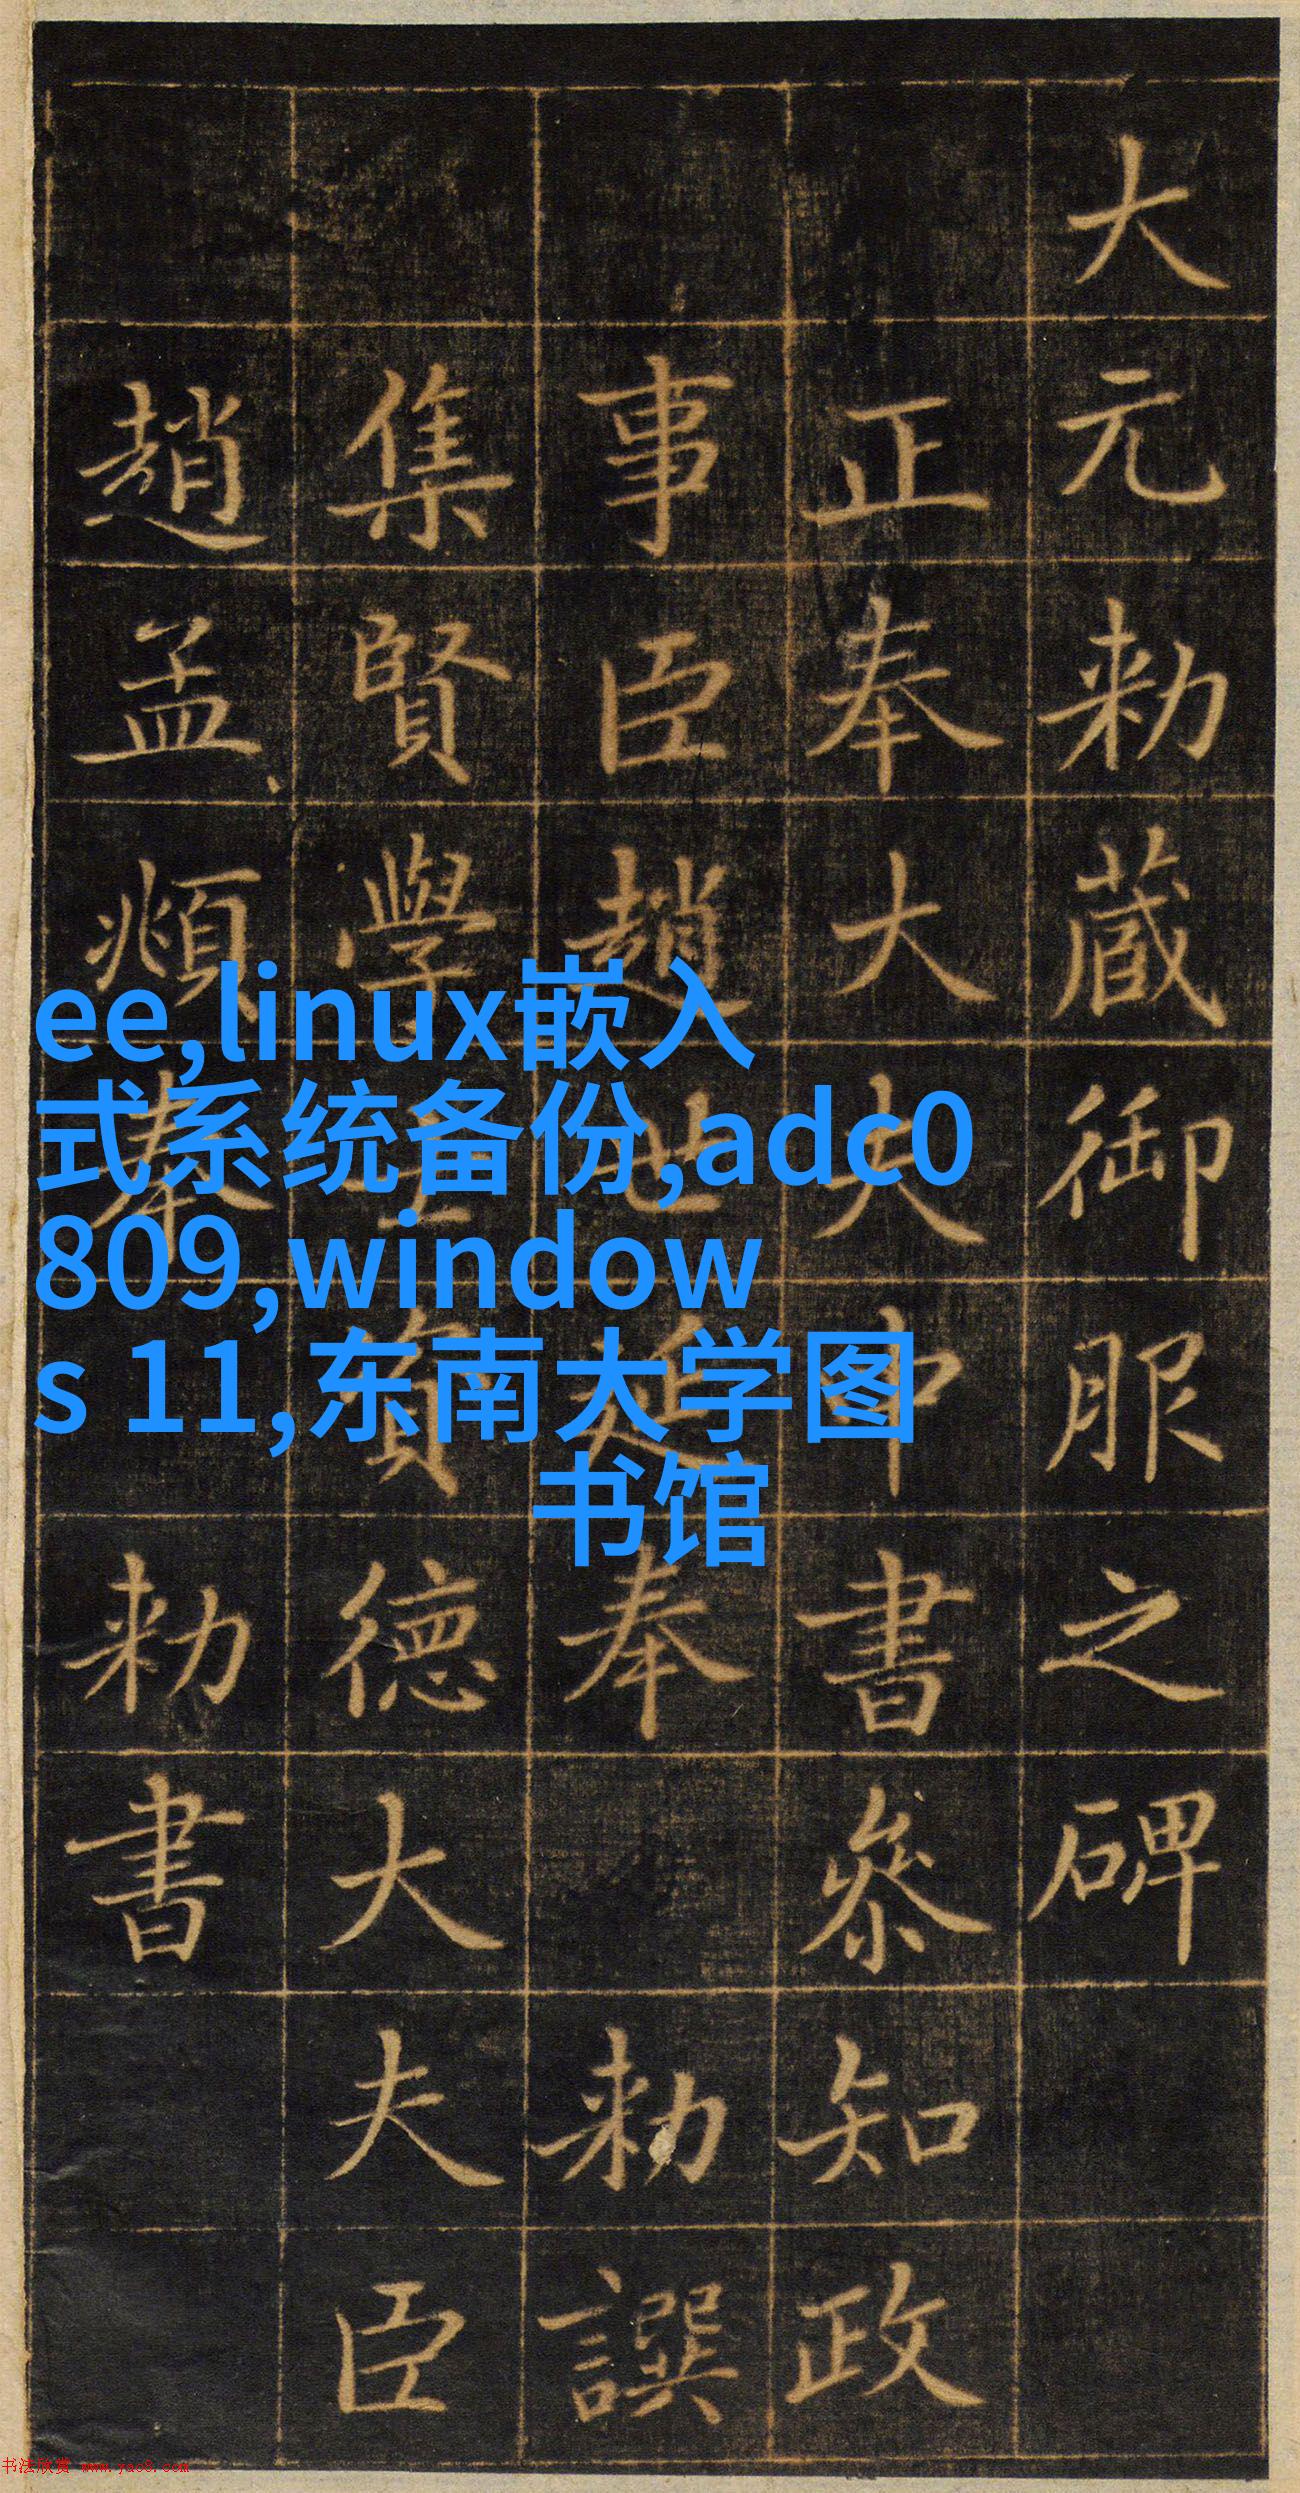 大元勑藏御服之碑
正奉大夫中書參知政
事臣趙世延奉 勑譔
集賢學士資德大夫臣
趙孟頫奉 勑書
ee,linux嵌入
式系统备份,adc0
809,window
s 11,东南大学图
书馆
书法欣赏 www.yac8.com